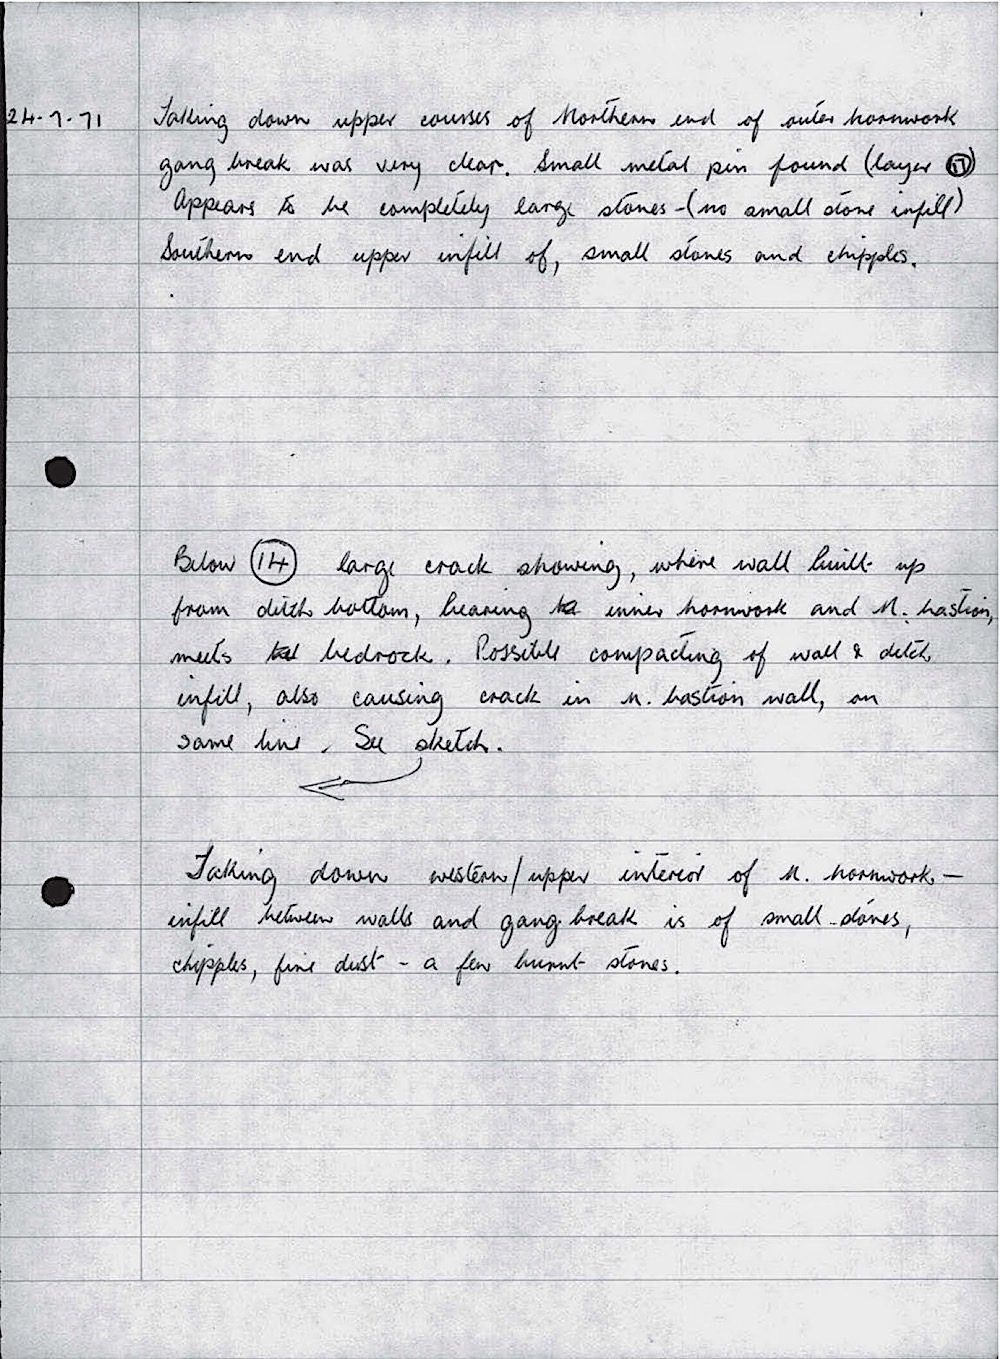 24-7-71 Taking down upper courses of Northern end of outer hornwork
gang break was very clear. Small metal pin found (layer 17)
Appears to be completely large stones - (no small stone infill)
Southern end upper infill of, small stones and chipples.
Below 14 large crack showing, where wall built up
from ditch bottom, bearing inner hornwork and N. bastion,
meets bedrock. Possible compacting of wall & ditch
infill, also causing crack in N. bastion wall, on
same line. See sketch.
Taking down western/upper interior of N. hornwork —
infill between walls and gang break is of small stones,
chipples, fine dust - a few burnt stones.